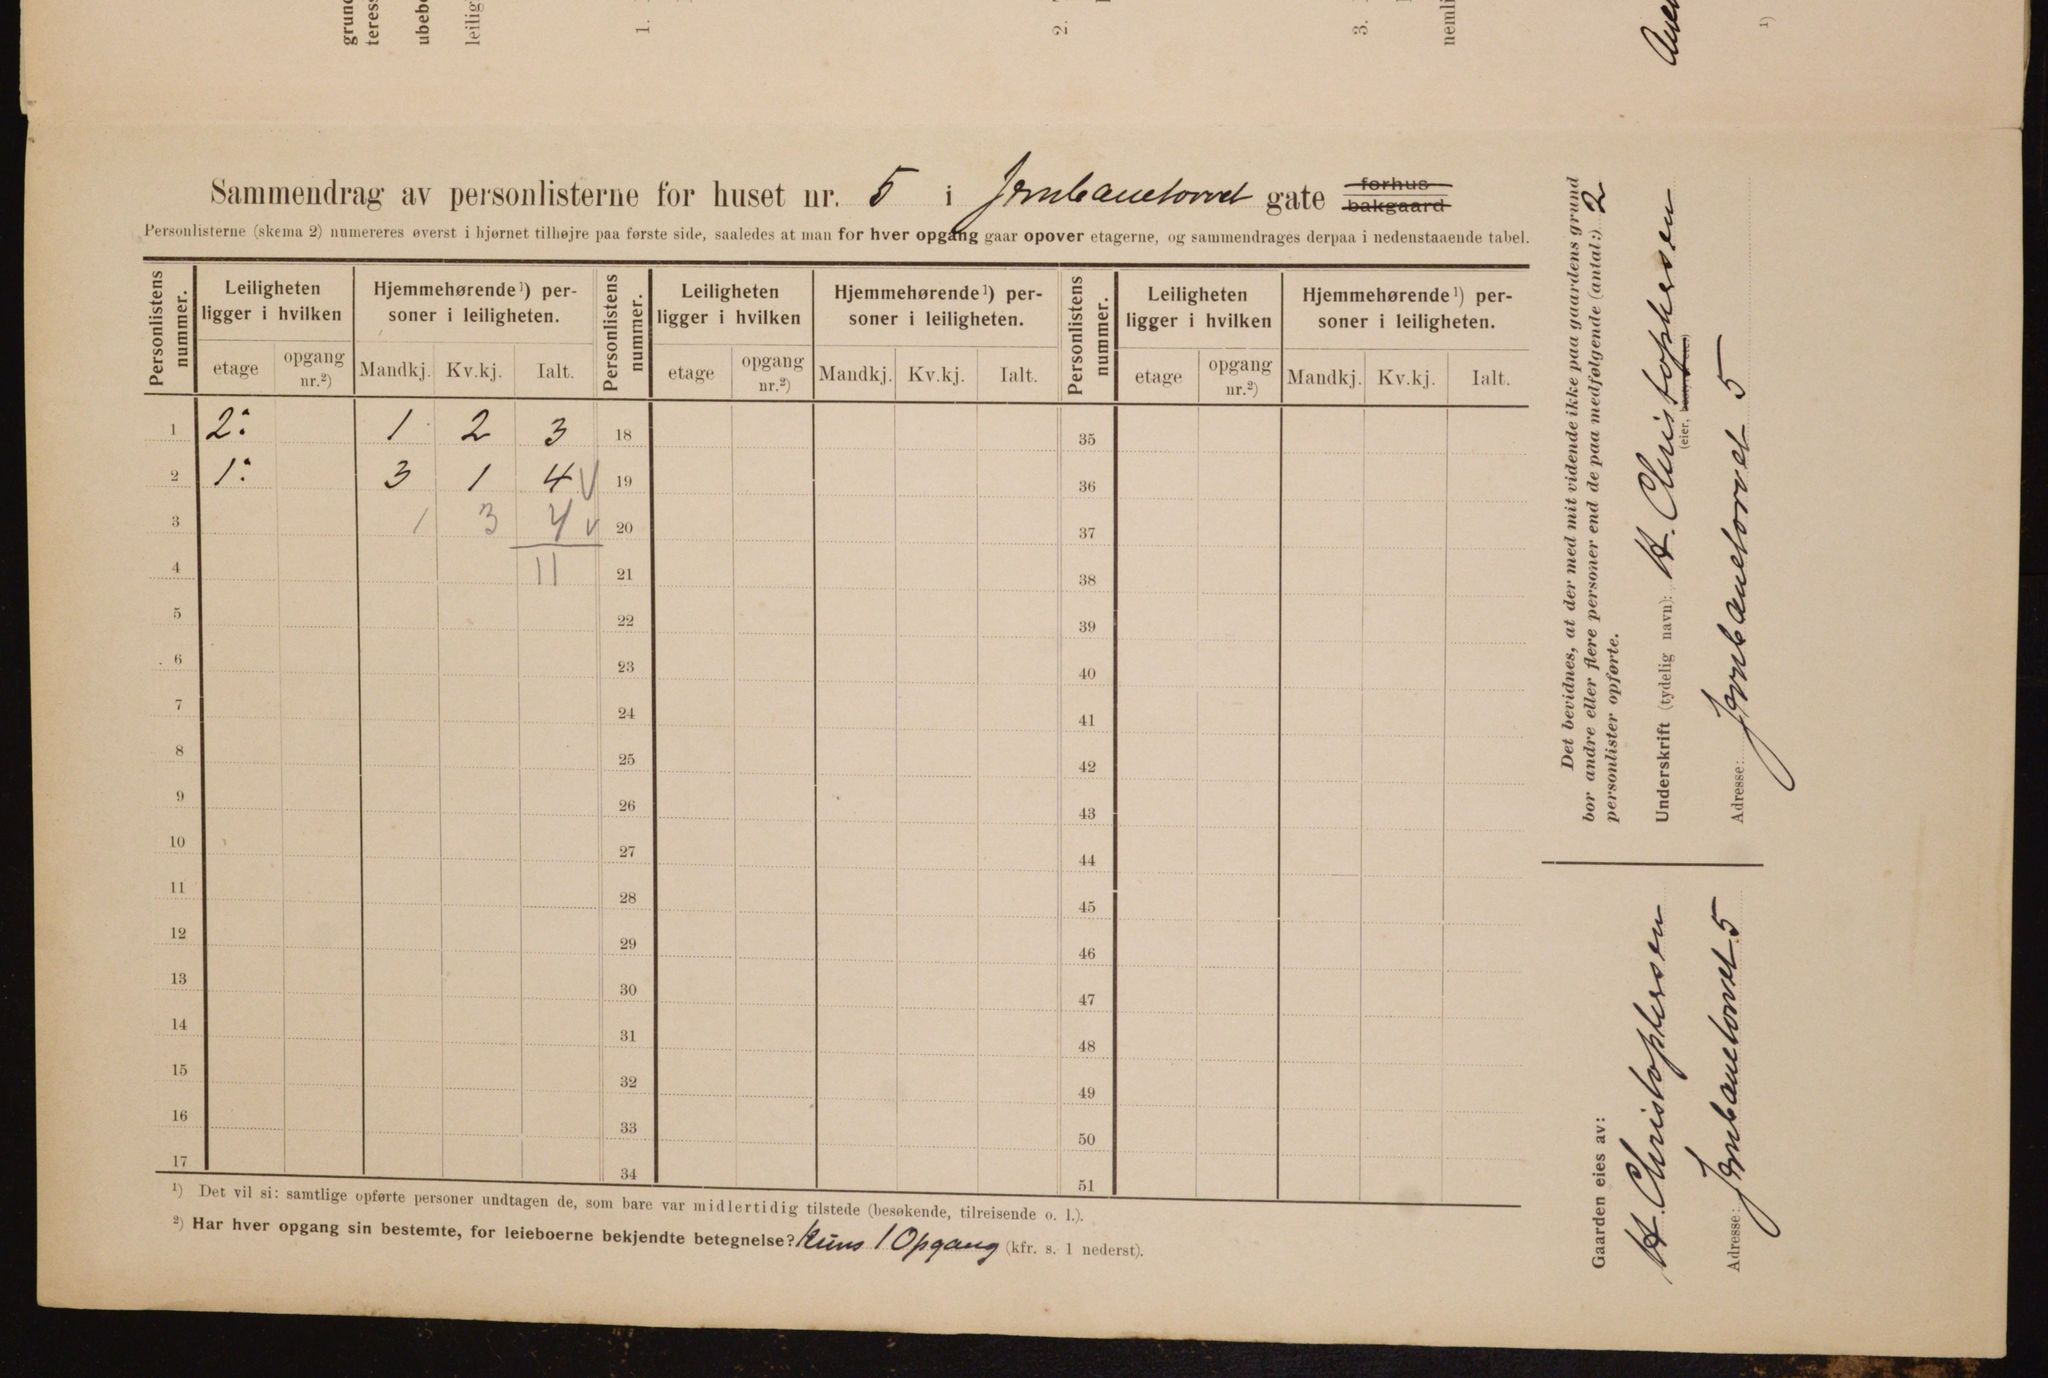 grund
teress
ubebo
leilig
1.
2.
3.
nemli
1)
Sammendrag av personlisterne for huset nr. 5 i Jernbanetorvet gate forhus bakgaard
Personlisterne (skema 2) numereres øverst i hjørnet tilhøjre paa første side, saaledes at man for hver opgang gaar opover etagerne, og sammendrages derpaa i nedenstaaende tabel.
Personlistens nummer. Leiligheten ligger i hvilken Hjemmehørende ¹) personer i leiligheten. Personlistens nummer. Leiligheten ligger i hvilken Hjemmehørende ¹) personer i leiligheten. Personlistens nummer. Leiligheten ligger i hvilken Hjemmehørende ¹) personer i leiligheten.
etage opgang nr.²) Mandkj. Kv.kj. Ialt. etage opgang nr.²) Mandkj. Kv.kj. Ialt. etage opgang nr.²) Mandkj. Kv.kj. Ialt.
1 2. 1 2 3 18 35
2 1. 3 1 4 V 19 36
3 1 3 4 v 20 37
4 11 21 38
5 22 39
6 23 40
7 24 41
8 25 42
9 26 43
10 27 44
11 28 45
12 29 46
13 30 47
14 31 48
15 32 49
16 33 50
17 34 51
¹) Det vil si: samtlige opførte personer undtagen de, som bare var midlertidig tilstede (besøkende, tilreisende o. l.).
²) Har hver opgang sin bestemte, for leieboerne bekjendte betegnelse? Kuns 1 Opgang (kfr. s. 1 nederst).
Det bevidnes, at der med mit vidende ikke paa gaardens grund
bor andre eller flere personer end de paa medfølgende (antal:) 2
personlister opførte.
Underskrift (tydelig navn): H. Christophersen
(eier,
Adresse: Jernbanetorvet 5
Gaarden eies av:
H. Christophersen
Adresse: Jernbanetorvet 5